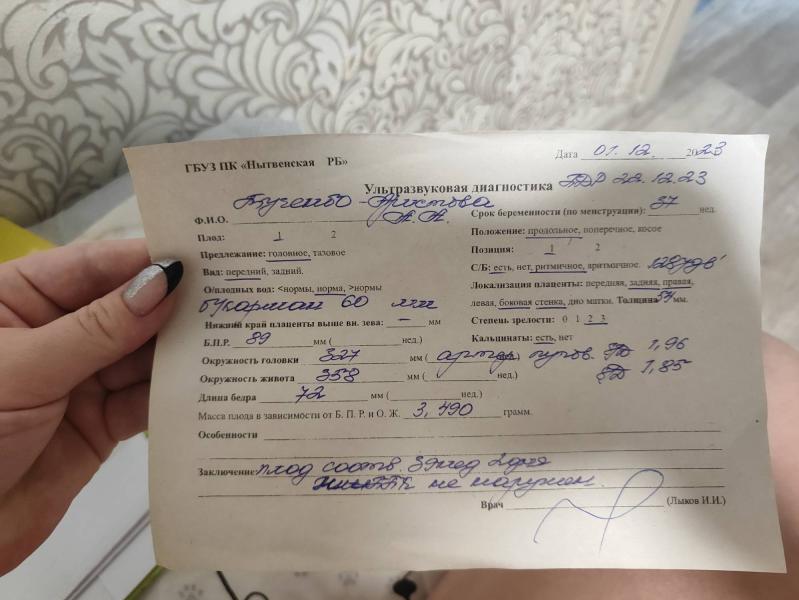 ГБУЗ ПК «Нытвенская РБ»
Дата 01.12. 2023
Ультразвуковая диагностика ПДР 22.12.23
Ф.И.О. А.А.
Срок беременности (по менструации): 37 нед.
Плод: 1 2
Положение: продольное, поперечное, косое
Предлежание: головное, тазовое
Позиция: 1 2
Вид: передний, задний.
С/Б: есть, нет, ритмичное, аритмичное. 128 уд/'
О/плодных вод: <нормы, норма, >нормы
Локализация плаценты: передняя, задняя, правая,
карман 60 мм
левая, боковая стенка, дно матки. Толщина мм.
Нижний край плаценты выше вн. зева: – мм
Степень зрелости: 0 1 2 3
Б.П.Р. 89 мм ( нед.)
Кальцинаты: есть, нет
Окружность головки 327 мм ( 1,96
Окружность живота 358 мм ( нед.) 1,85
Длина бедра 72 мм ( нед.)
Масса плода в зависимости от Б. П. Р. и О. Ж. 3,490 грамм.
Особенности
Заключение: плод соотв. 39нед 2дня
не нарушен.
Врач (Лыков И.И.)